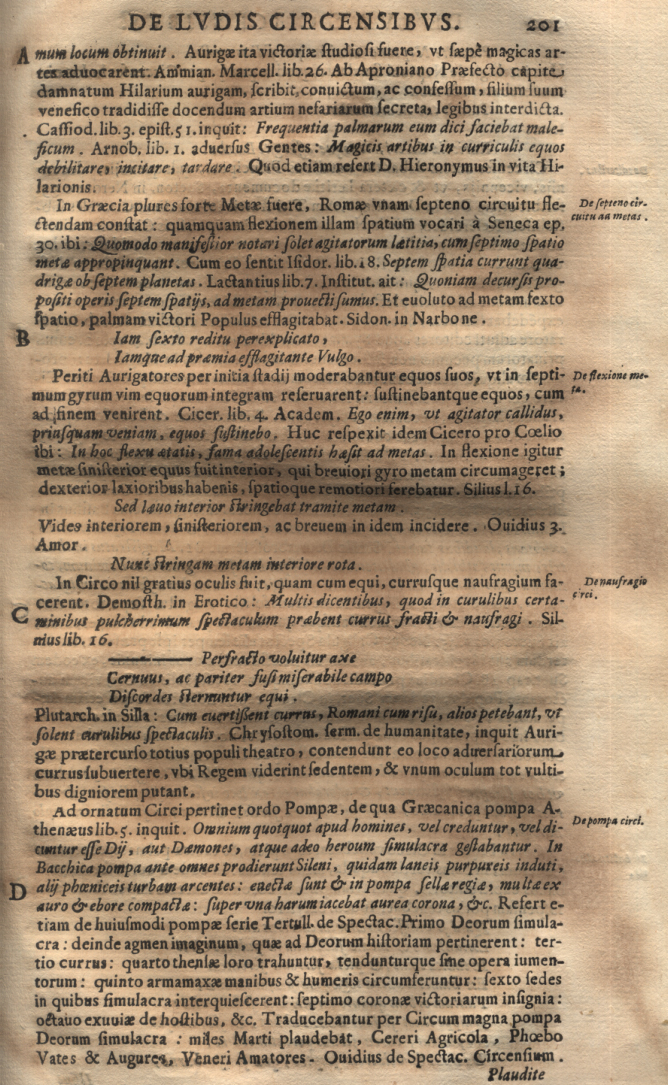 DE LVDIS CIRCENSIBVS. 201
A mum locum obtinuit. Aurigæ ita victoriæ studiosi fuere, vt sæpè magicas ar-
tes aduocarent. Ammian. Marcell. lib. 26. Ab Aproniano Præfecto capite
damnatum Hilarium aurigam, scribit, conuictum, ac confessum, filium suum
venefico tradidisse docendum artium nefariarum secreta, legibus interdicta.
Cassiod. lib. 3. epist. 51. inquit: Frequentia palmarum eum dici faciebat male-
ficum. Arnob. lib. 1. aduersus Gentes: Magicis artibus in curriculis equos
debilitare, incitare, tardare. Quod etiam refert D. Hieronymus in vita Hi-
larionis.
In Græcia plures forte Metæ fuere, Romæ vnam septeno circuitu fle-
De septeno cir-
ctendam constat: quamquam flexionem illam spatium vocari à Seneca ep.
cuitu ad metas.
30. ibi: Quomodo manifestior notari solet agitatorum lætitia, cum septimo spatio
metæ appropinquant. Cum eo sentit Isidor. lib. 18. Septem spatia currunt qua-
drigæ ob septem planetas. Lactantius lib. 7. Institut. ait: Quoniam decursis pro-
positi operis septem spatijs, ad metam prouecti sumus. Et euoluto ad metam sexto
spatio, palmam victori Populus efflagitabat. Sidon. in Narbone.
B Iam sexto reditu perexplicato,
Iamque ad præmia efflagitante Vulgo.
Periti Aurigatores per initia stadij moderabantur equos suos, vt in septi-
De flexione me-
mum gyrum vim equorum integram reseruarent: sustinebantque equos, cum
ta.
ad finem venirent. Cicer. lib. 4. Academ. Ego enim, vt agitator callidus,
priusquam veniam, equos sustinebo. Huc respexit idem Cicero pro Cœlio
ibi: In hoc flexu ætatis, fama adolescentis hæsit ad metas. In flexione igitur
metæ sinisterior equus fuit interior, qui breuiori gyro metam circumageret;
dexterior laxioribus habenis, spatioque remotiori ferebatur. Silius l. 16.
Sed læuo interior stringebat tramite metam.
Vides interiorem, sinisteriorem, ac breuem in idem incidere. Ouidius 3.
Amor.
Nunc stringam metam interiore rota.
In Circo nil gratius oculis fuit, quam cum equi, currusque naufragium fa-
De naufragio
cerent. Demosth. in Erotico: Multis dicentibus, quod in curulibus certa-
circi.
C minibus pulcherrimum spectaculum præbent currus fracti & naufragi. Sil-
nius lib. 16.
Perfracto voluitur axe
Cernuus, ac pariter fusi miserabile campo
Discordes sternuntur equi.
Plutarch. in Silla: Cum euertissent currus, Romani cum risu, alios petebant, vt
solent curulibus spectaculis. Chrysostom. serm. de humanitate, inquit Auri-
gæ prætercurso totius populi theatro, contendunt eo loco aduersariorum
currus subuertere, vbi Regem viderint sedentem, & vnum oculum tot vulti-
bus digniorem putant.
Ad ornatum Circi pertinet ordo Pompæ, de qua Græcanica pompa A-
De pompa circi.
thenæus lib. 5. inquit. Omnium quotquot apud homines, vel creduntur, vel di-
cuntur esse Dij, aut Dæmones, atque adeo heroum simulacra gestabantur. In
Bacchica pompa ante omnes prodierunt Sileni, quidam laneis purpureis induti,
D alij phœniceis turbam arcentes: euectæ sunt & in pompa sellæ regiæ, multæ ex
auro & ebore compactæ: super vna harum iacebat aurea corona, &c. Refert e-
tiam de huiusmodi pompæ serie Tertull. de Spectac. Primo Deorum simula-
cra: deinde agmen imaginum, quæ ad Deorum historiam pertinerent: ter-
tio currus: quarto thensæ loro trahuntur, tendunturque sine opera iumen-
torum: quinto armamaxæ manibus & humeris circumferuntur: sexto sedes
in quibus simulacra interquiescerent: septimo coronæ victoriarum insignia:
octauo exuuiæ de hostibus, &c. Traducebantur per Circum magna pompa
Deorum simulacra: miles Marti plaudebat, Cereri Agricola, Phœbo
Vates & Augures, Veneri Amatores. Ouidius de Spectac. Circensium.
Plaudite